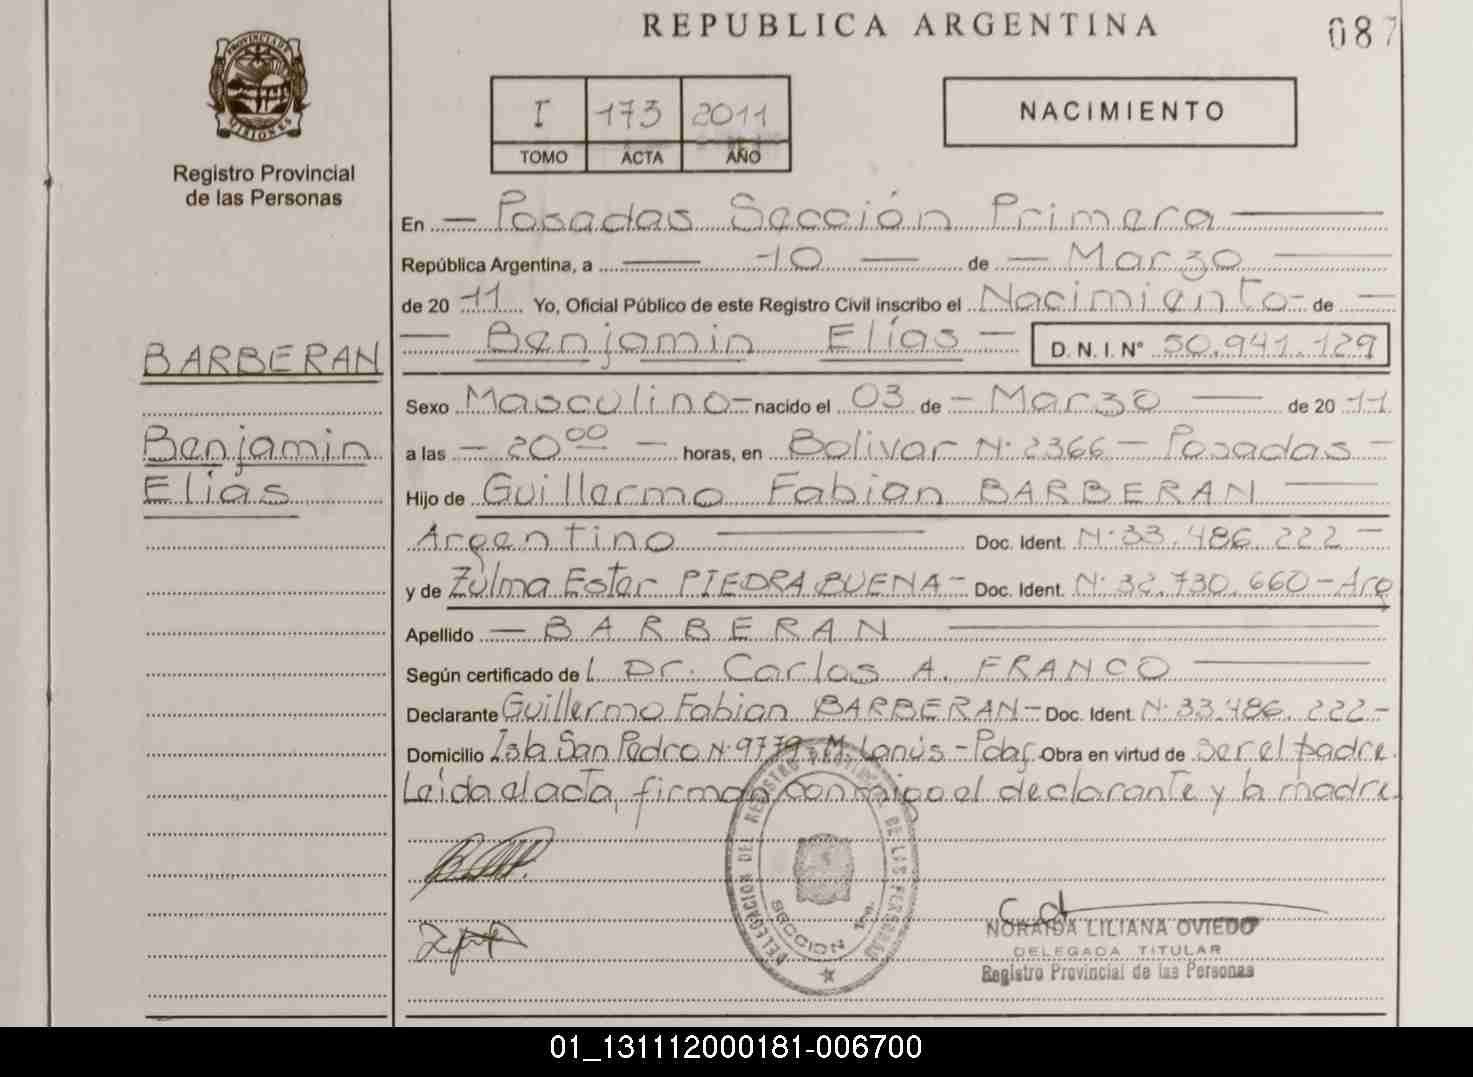 REPUBLICA ARGENTINA
087
PROVINCIA DE MISIONES
Registro Provincial
de las Personas
I 173 2011
TOMO ACTA AÑO
NACIMIENTO
En — Posadas Sección Primera —
República Argentina, a — 10 — de — Marzo —
de 2011 Yo, Oficial Público de este Registro Civil inscribo el Nacimiento - de —
— Benjamin Elías — D. N. I. N° 50.941.129
BARBERAN
Benjamin
Elías
Sexo Masculino - nacido el 03 de - Marzo — de 2011
a las - 20⁰⁰ - horas, en Bolivar N· 2366 - Posadas -
Hijo de Guillermo Fabian BARBERAN —
Argentino — Doc. Ident. N· 33.486.222 -
y de Zulma Ester PIEDRABUENA - Doc. Ident. N· 32.730.660 - Arg
Apellido — BARBERAN —
Según certificado de l Dr. Carlos A. FRANCO —
Declarante Guillermo Fabian BARBERAN - Doc. Ident. N· 33.486.222 -
Domicilio Isla San Pedro N· 9779 - M. Lanús - Pdas. Obra en virtud de ser el padre.
Leida el acta, firman conmigo el declarante y la madre.
DELEGACION DEL REGISTRO PROVINCIAL DE LAS PERSONAS
SECCION 1ra.
NORAIDA LILIANA OVIEDO
DELEGADA TITULAR
Registro Provincial de las Personas
01_131112000181-006700